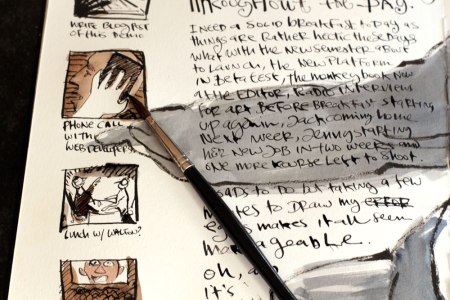 WRITE BLOG POST
OF THIS DEMO
PHONE CALL
WITH
WEB DEVELOPERS
LUNCH W/ WALTON?
THROUGHOUT THE DAY.
I NEED A SOLID BREAKFAST TODAY AS
THINGS ARE RATHER HECTIC THESE DAYS
WHAT WITH THE NEW SEMESTER ABOUT
TO LAUNCH, THE NEW PLATFORM
IN BETA TEST, THE MONKEY BOOK NOW
AT THE EDITOR, RADIO INTERVIEWS
FOR ART BEFORE BREAKFAST STARTING
UP AGAIN, JACK COMING HOME
NEXT WEEK, JENNY STARTING
HER NEW JOB IN TWO WEEKS AND
ONE MORE KOURSE LEFT TO SHOOT.
LOADS TO DO BUT TAKING A FEW
MINUTES TO DRAW MY
EGGS MAKES IT ALL SEEM
MANAGEABLE.
OH, AND
IT'S